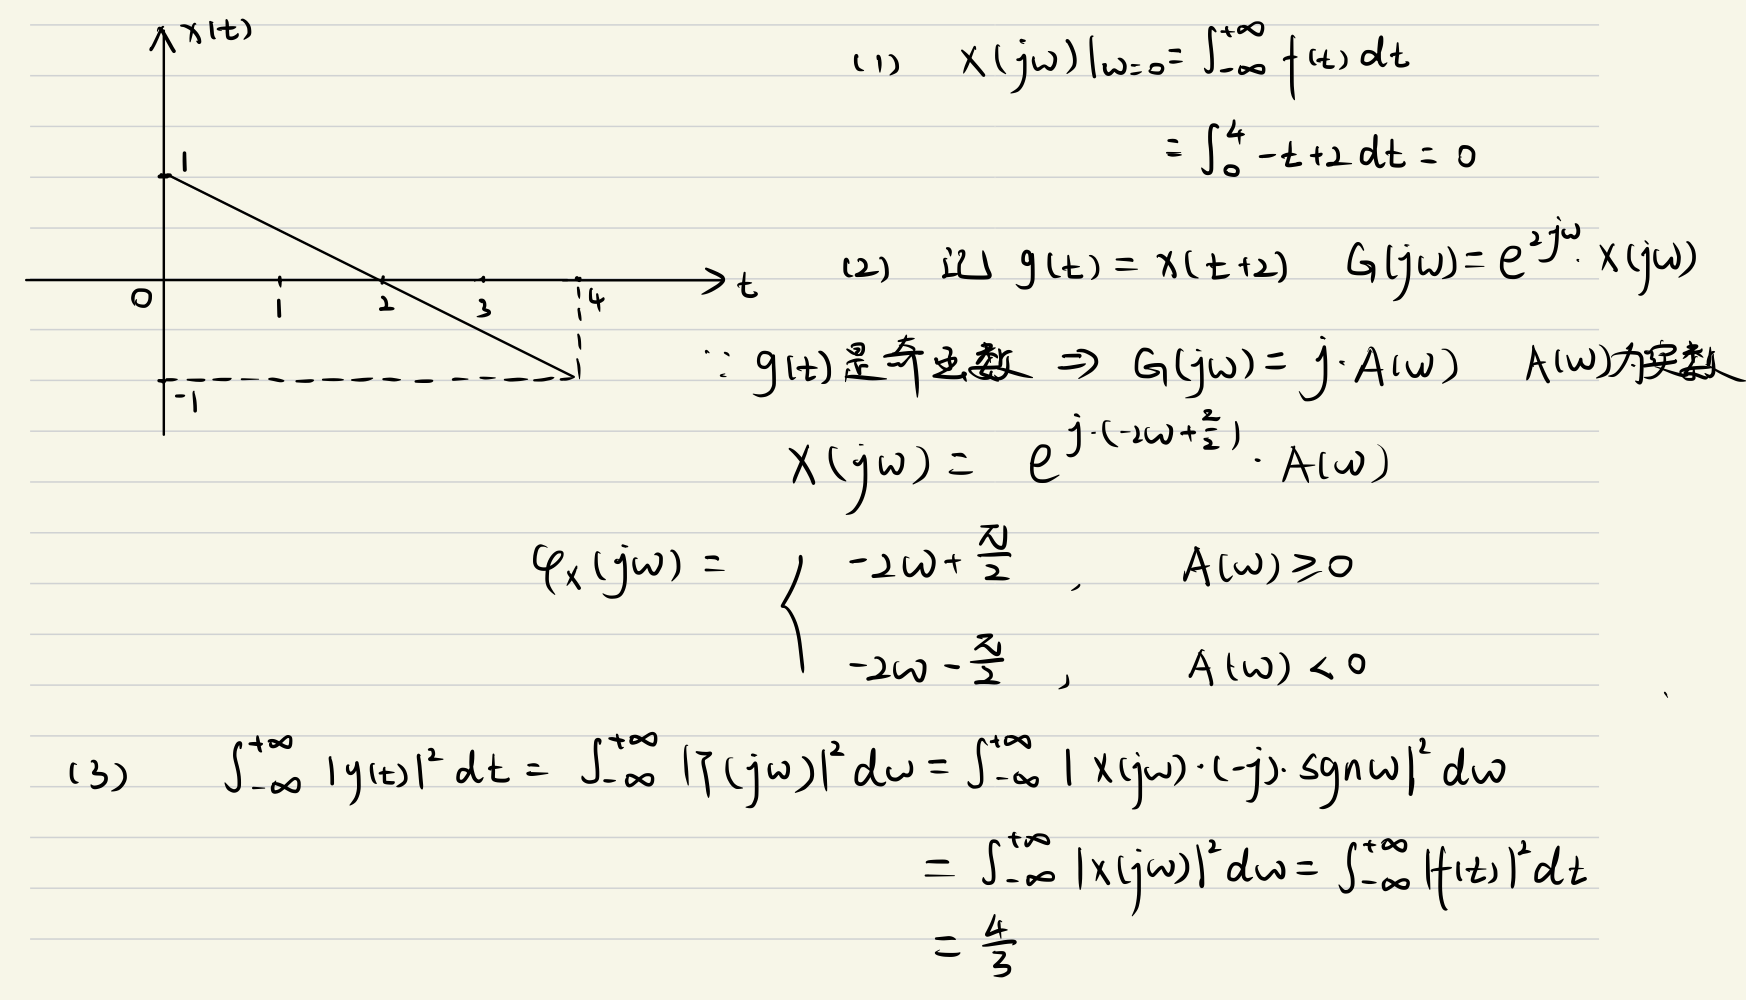 x(t)
1
0 1 2 3 4 t
-1
(1) X(jω)|ω=0 = ∫_{-∞}^{+∞} f(t) dt
= ∫_0^4 -t+2 dt = 0
(2) 记 g(t) = x(t+2) G(jω) = e^{2jω} · X(jω)
∵ g(t) 是奇函数 ⇒ G(jω) = j·A(ω) A(ω)为实数
X(jω) = e^{j·(-2ω+\frac{2}{2})} · A(ω)
φ_X(jω) = { -2ω+\frac{π}{2} , A(ω) ≥ 0
-2ω-\frac{π}{2} , A(ω) < 0
(3) ∫_{-∞}^{+∞} |y(t)|² dt = ∫_{-∞}^{+∞} |Y(jω)|² dω = ∫_{-∞}^{+∞} |X(jω)·(-j)·sgnω|² dω
= ∫_{-∞}^{+∞} |X(jω)|² dω = ∫_{-∞}^{+∞} |f(t)|² dt
= \frac{4}{3}